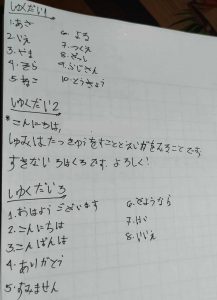 しゅくだい1
1.あさ
2.いえ
3.やま
4.そら
5.ねこ
6.よる
7.つくえ
8.ざっし
9.ふじさん
10.とうきょう
しゅくだい2
*こんにちは。
しゅみは、たっきゅうをすることと
です
すきないろはくろです。よろしく!
しゅくだい3
1.おはようございます
2.こんにちは
3.こんばんは
4.ありがとう
5.すみません
6.さようなら
7.はい
8.いいえ